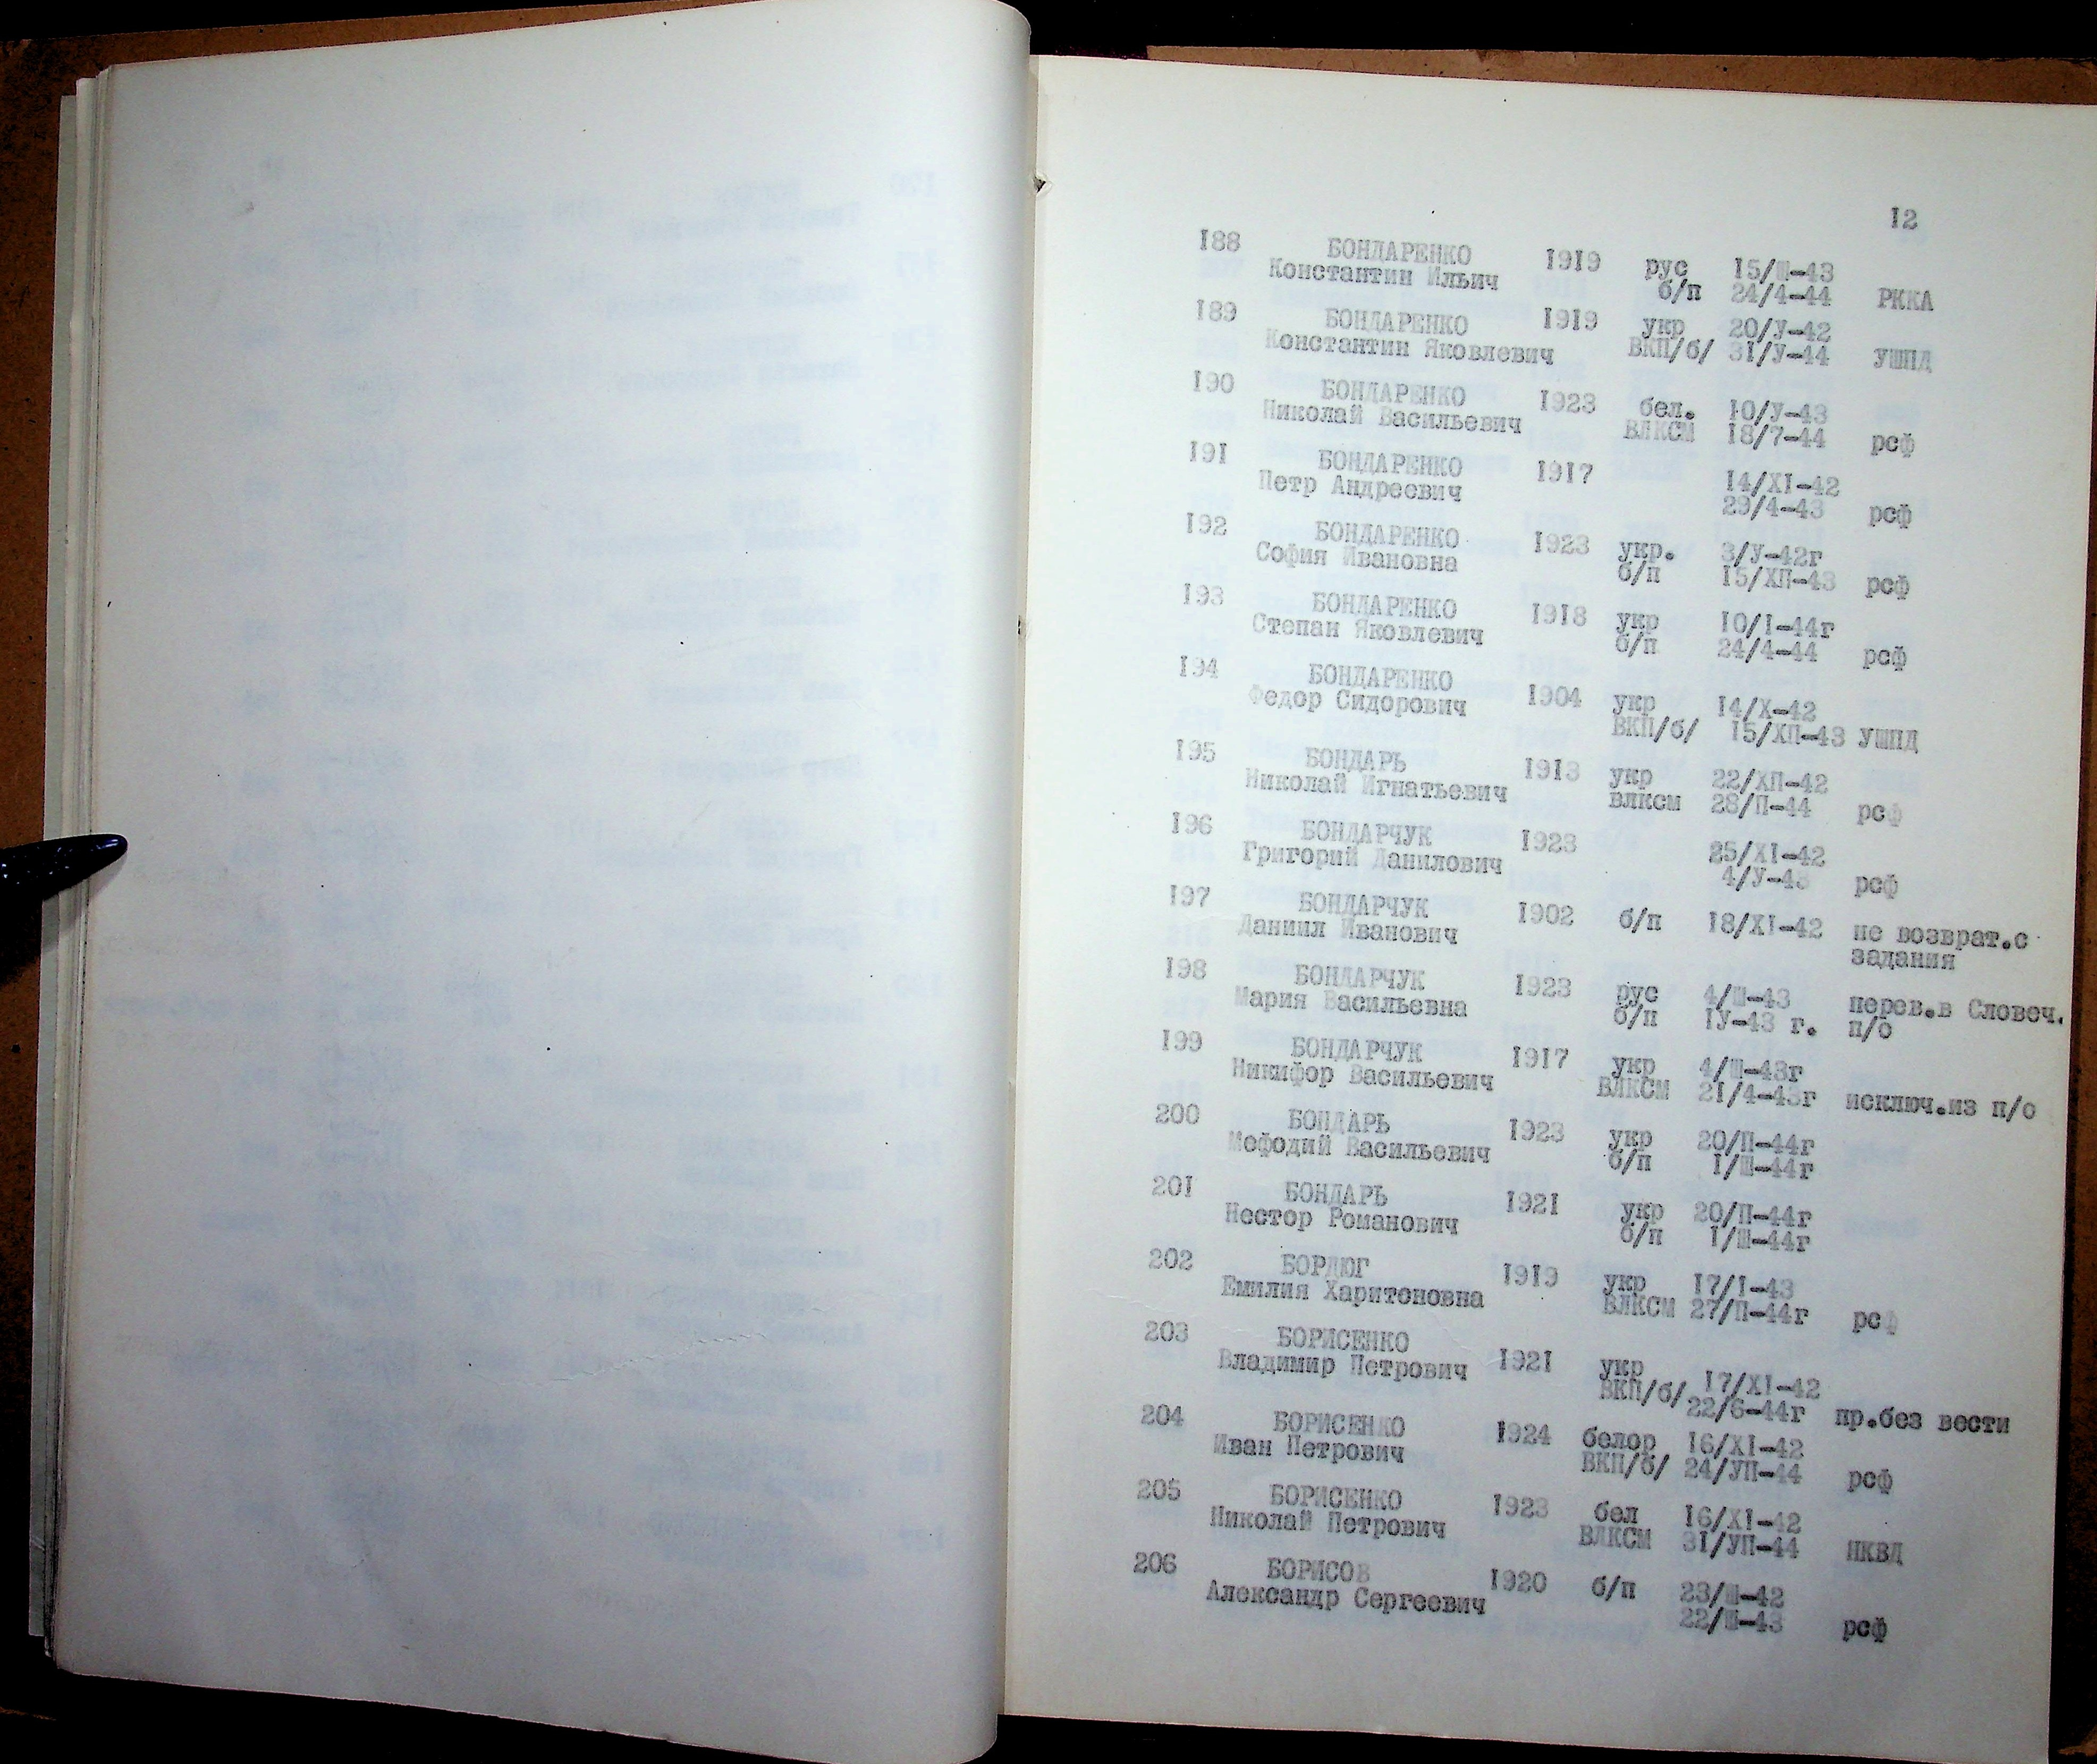 12
188 БОНДАРЕНКО 1919 рус 15/Ш-43
Константин Ильич б/п 24/4-44 РККА
189 БОНДАРЕНКО 1919 укр 20/У-42
Константин Яковлевич ВКП/б/ 31/У-44 УШПД
190 БОНДАРЕНКО 1923 бел. 10/У-43
Николай Васильевич ВЛКСМ 18/7-44 рсф
191 БОНДАРЕНКО 1917 14/XI-42
Петр Андреевич 29/4-43 рсф
192 БОНДАРЕНКО 1923 укр. 3/У-42г
София Ивановна б/п 15/ХП-43 рсф
193 БОНДАРЕНКО 1918 укр 10/I-44г
Степан Яковлевич б/п 24/4-44 рсф
194 БОНДАРЕНКО 1904 укр 14/X-42
Федор Сидорович ВКП/б/ 15/ХП-43 УШПД
195 БОНДАРЬ 1913 укр 22/ХП-42
Николай Игнатьевич влксм 28/П-44 рсф
196 БОНДАРЧУК 1923 25/XI-42
Григорий Данилович 4/У-43 рсф
197 БОНДАРЧУК 1902 б/п 18/XI-42 не возврат.с
Даниил Иванович задания
198 БОНДАРЧУК 1923 рус 4/Ш-43 перев.в Словеч.
Мария Васильевна б/п IУ-43 г. п/о
199 БОНДАРЧУК 1917 укр 4/Ш-43г
Никифор Васильевич ВЛКСМ 21/4-43г исключ.из п/о
200 БОНДАРЬ 1923 укр 20/П-44г
Мефодий Васильевич б/п 1/Ш-44г
201 БОНДАРЬ 1921 укр 20/П-44г
Нестор Романович б/п 1/Ш-44г
202 БОРДЮГ 1919 укр 17/I-43
Емилия Харитоновна ВЛКСМ 27/П-44г рсф
203 БОРИСЕНКО 1921 укр 17/XI-42
Владимир Петрович ВКП/б/ 22/6-44г пр.без вести
204 БОРИСЕНКО 1924 белор 16/XI-42
Иван Петрович ВКП/б/ 24/УП-44 рсф
205 БОРИСЕНКО 1923 бел 16/XI-42
Николай Петрович ВЛКСМ 31/УП-44 НКВД
206 БОРИСОВ 1920 б/п 23/Ш-42
Александр Сергеевич 22/Ш-43 рсф